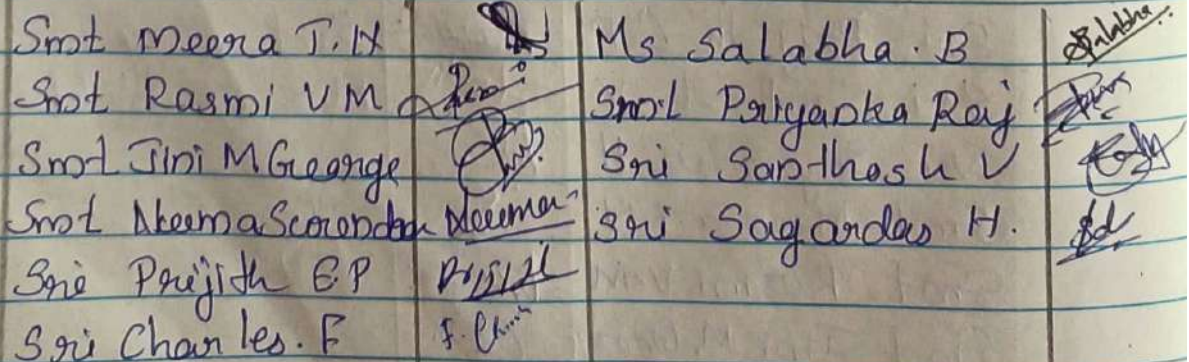 Smt Meera T.N Ms Salabha. B Salabha
Smt Rasmi V M Smt Priyanka Raj
Smt Jini M George Sri Santhosh V
Smt Neema Neema Sri Sagardas H. Sd
Sri Prijith E.P
Sri Charles. F F. Ch